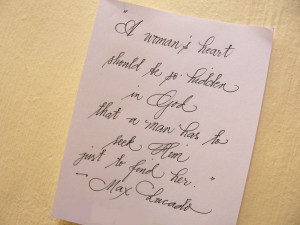 "A woman's heart
should be so hidden
in God
that a man has to
seek Him
just to find her."
- Max Lucado